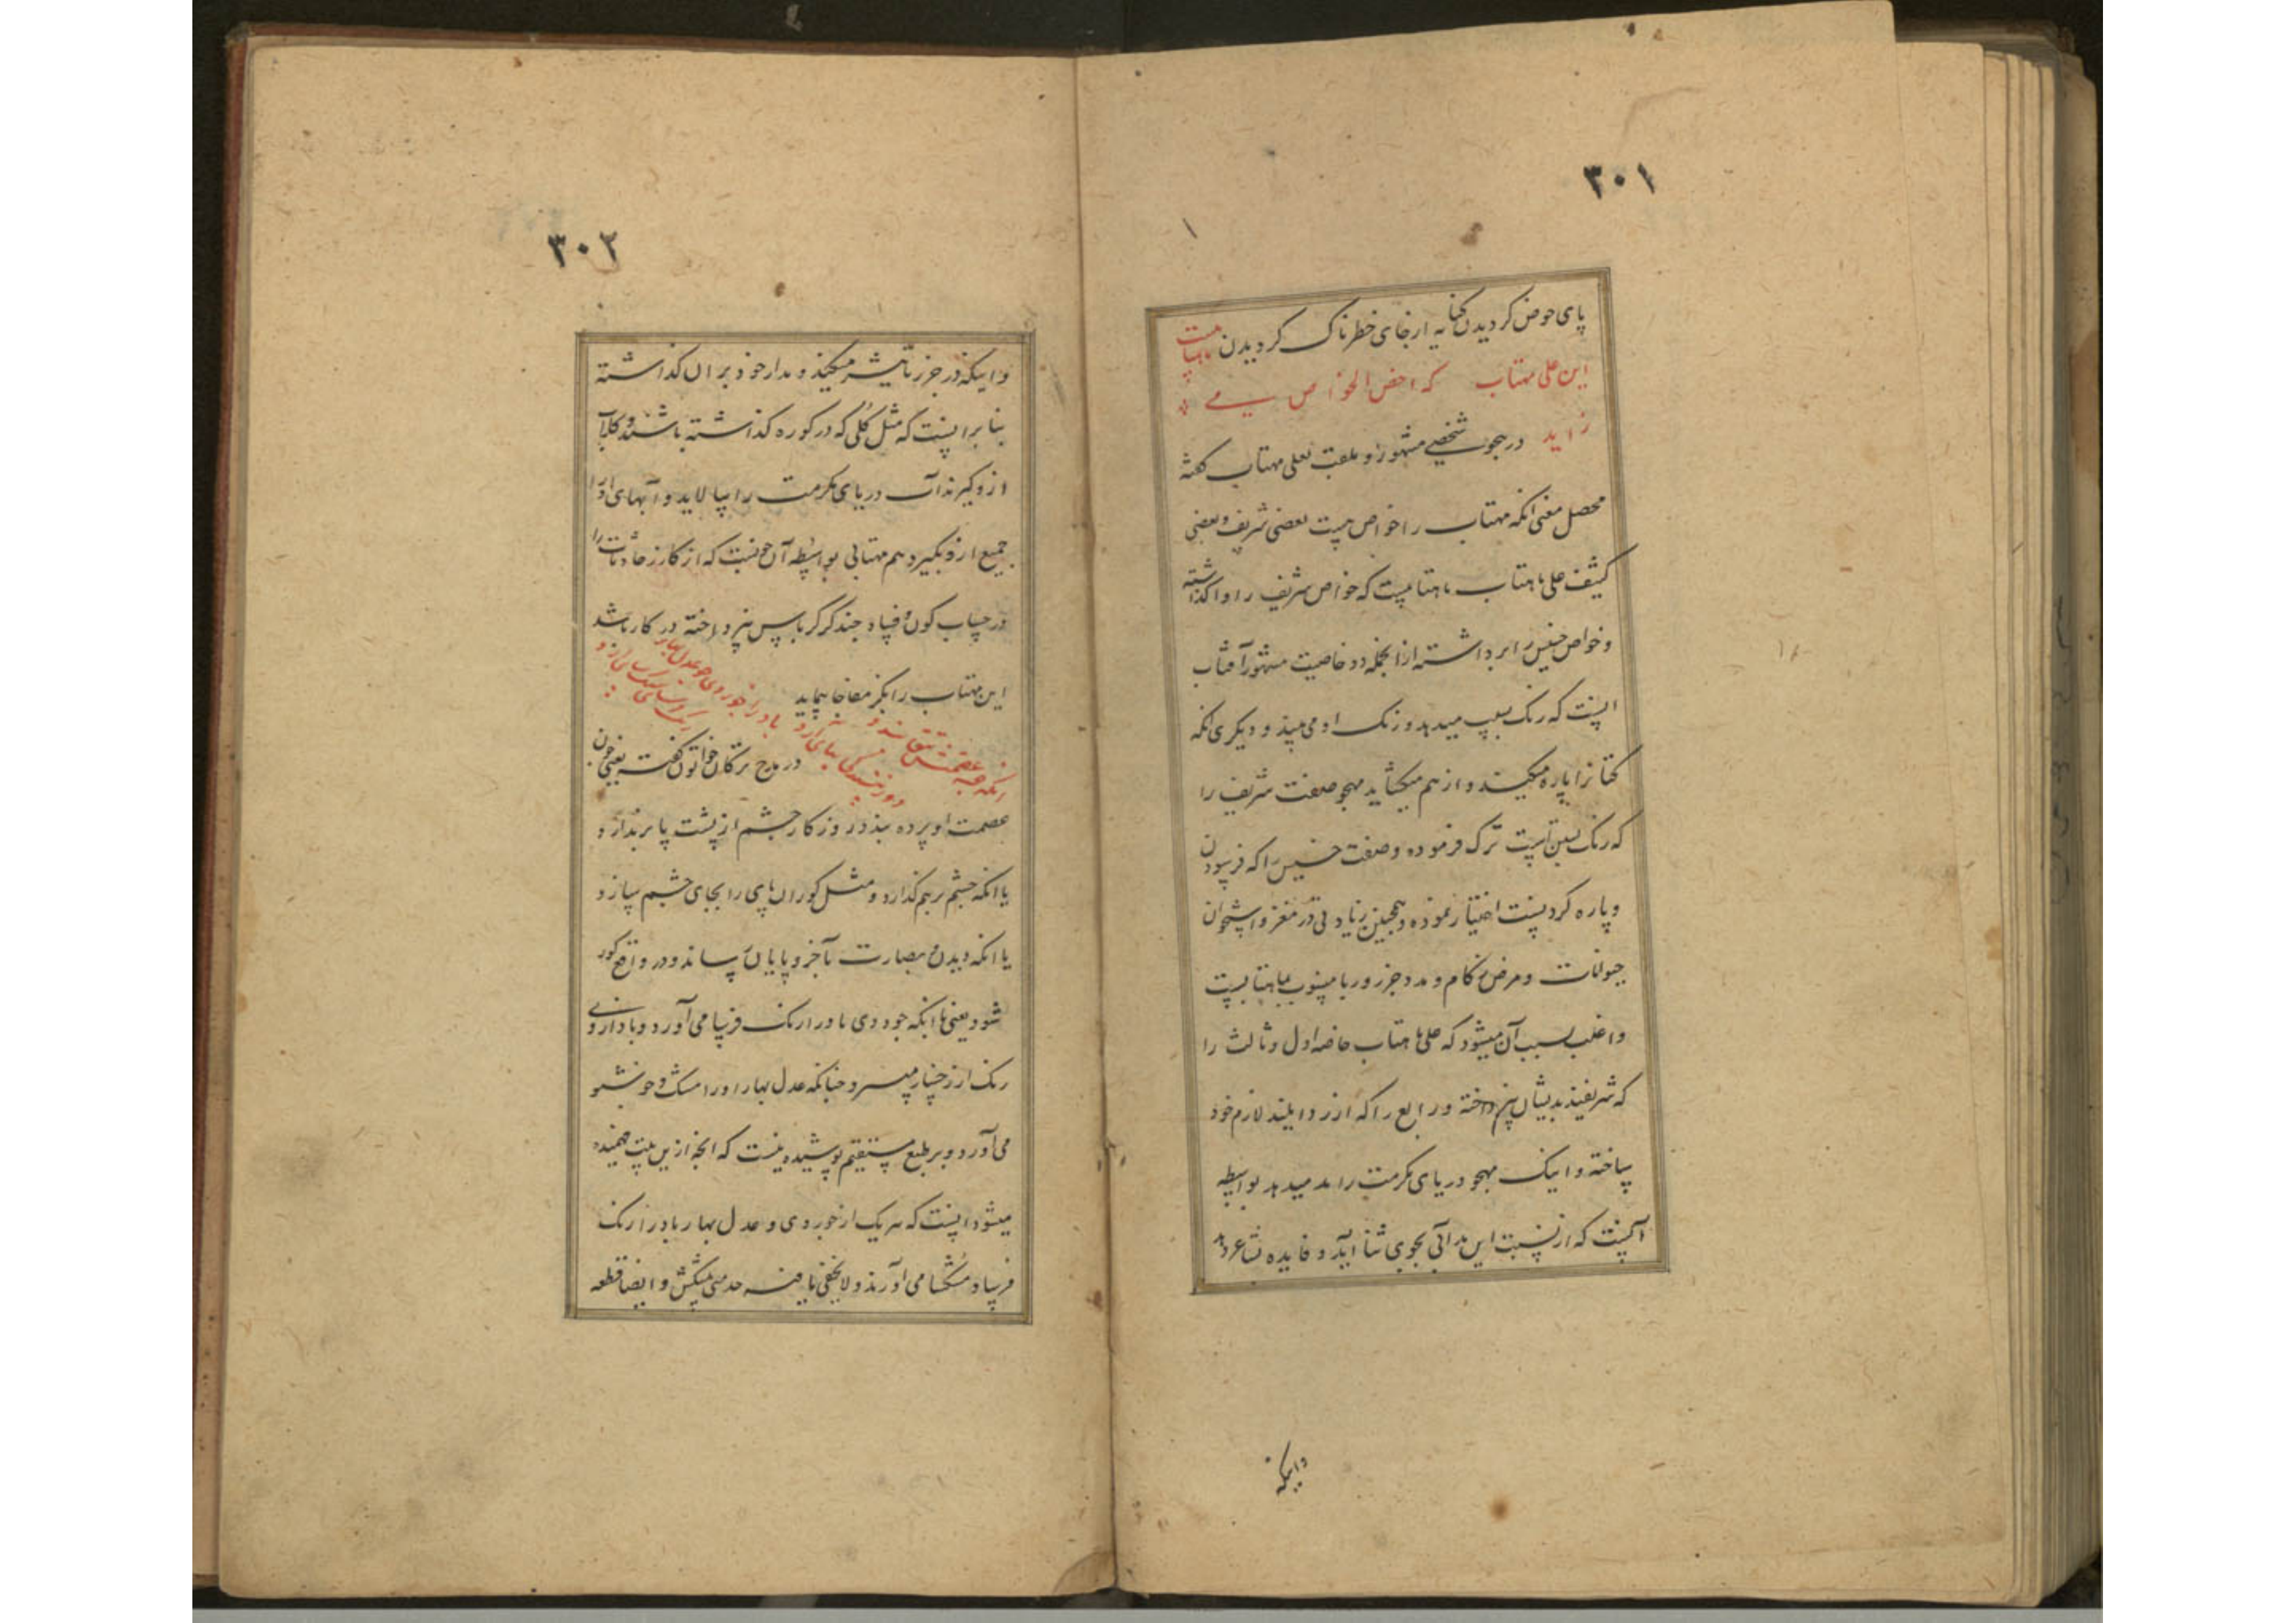 ۳۰۱
پای حوض کردیدن کنایه از جای خطرناک کردیدن
این علی مهتاب که اخص الخواص می
زاید در هجو شخصی مشهور و ملقب بعلی مهتاب کفته
محصل معنی آنکه مهتاب را خواص هست بعضی شریف و بعضی
کثیف علی ماهتاب ماهتابیست که خواص شریف را واکذاشته
و خواص خسیس را برداشته از انجمله دو خاصیت مشهور آفتاب
اینست که رنک بسیب میدهد و رنک او می بیند و دیکری آنکه
کتانرا پاره میکند و از هم میکشاید مهجو صفت شریف را
که رنک سیبست ترک فرموده و صفت خسیس را که فرسودن
و پاره کردنست اختیار نموده و همچنین زیادتی در مغز و استخوان
حیوانات و مرض زکام و مد و جزر دریا منسوب بماهتابست
و اغلب سبب آن میشود که علی ماهتاب خاصه اول و ثالث را
که شریفند بدیشان نپرداخته و رابع را که ارذال لازم خود
ساخته و اینک مهجو دریای مکرمت را مد میدهد بواسطه
آنست که از نسبت این مد آبی بجوی ثنا آید و فایده بشاعر دهد
واینکه
۳۰۲
و اینکه در جزر تاثیر میکند و مدار خود بر آن کذاشته
بنابر اینست که مثل کلی که در کوره کذاشته باشند و کلاب
ازو کیرند آب دریای مکرمت را بپالاید و آبهای او را
جمیع ازو بکیرد هم مهتابی بواسطه آن خونست که از کازر حادثات را
در حساب کون و فساد چند کز کرباس نپرداخته در کار باشد
این مهتاب را بکز مفاجا پیماید
انکه چو عصمتش تتق بندد
روز بینندکی بپای آرد
باد را خوردی و عدل بهار
رنک آسا و مشک سای آرد
در مدح ترکان خاتون کفته یعنی چون
عصمت او پرده بندد روزکار چشم از پشت پا برندارد
یا آنکه چشم بر هم کذارد و مثل کوران پای را بجای چشم سازد
یا آنکه دیدن و بصارت بآخر و پایان رساند و در واقع کور
شود یعنی با آنکه جور دی باد را رنک فرسا می آورد و باد از وی
رنک از رخسار میبرد چنانکه عدل بهار او را مشک و خوشبو
می آورد و بر طبع مستقیم پوشیده نیست که آنچه ازین بیت فهمیده
میشود اینست که هر یک از جور دی و عدل بهار باد را رنک
فرسا و مشکسا می آورند و لا یخفی ما فیه حدمتی پیکش و ایضا قطعه